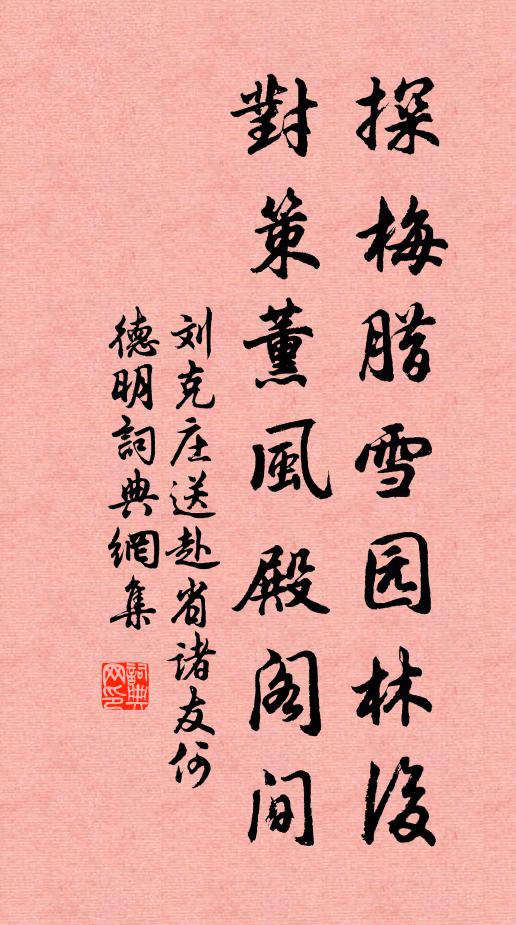 探梅腊雪园林后
對策薰風殿阁间
刘克庄送赴省诸友何
德明詞典網集
詞典网印